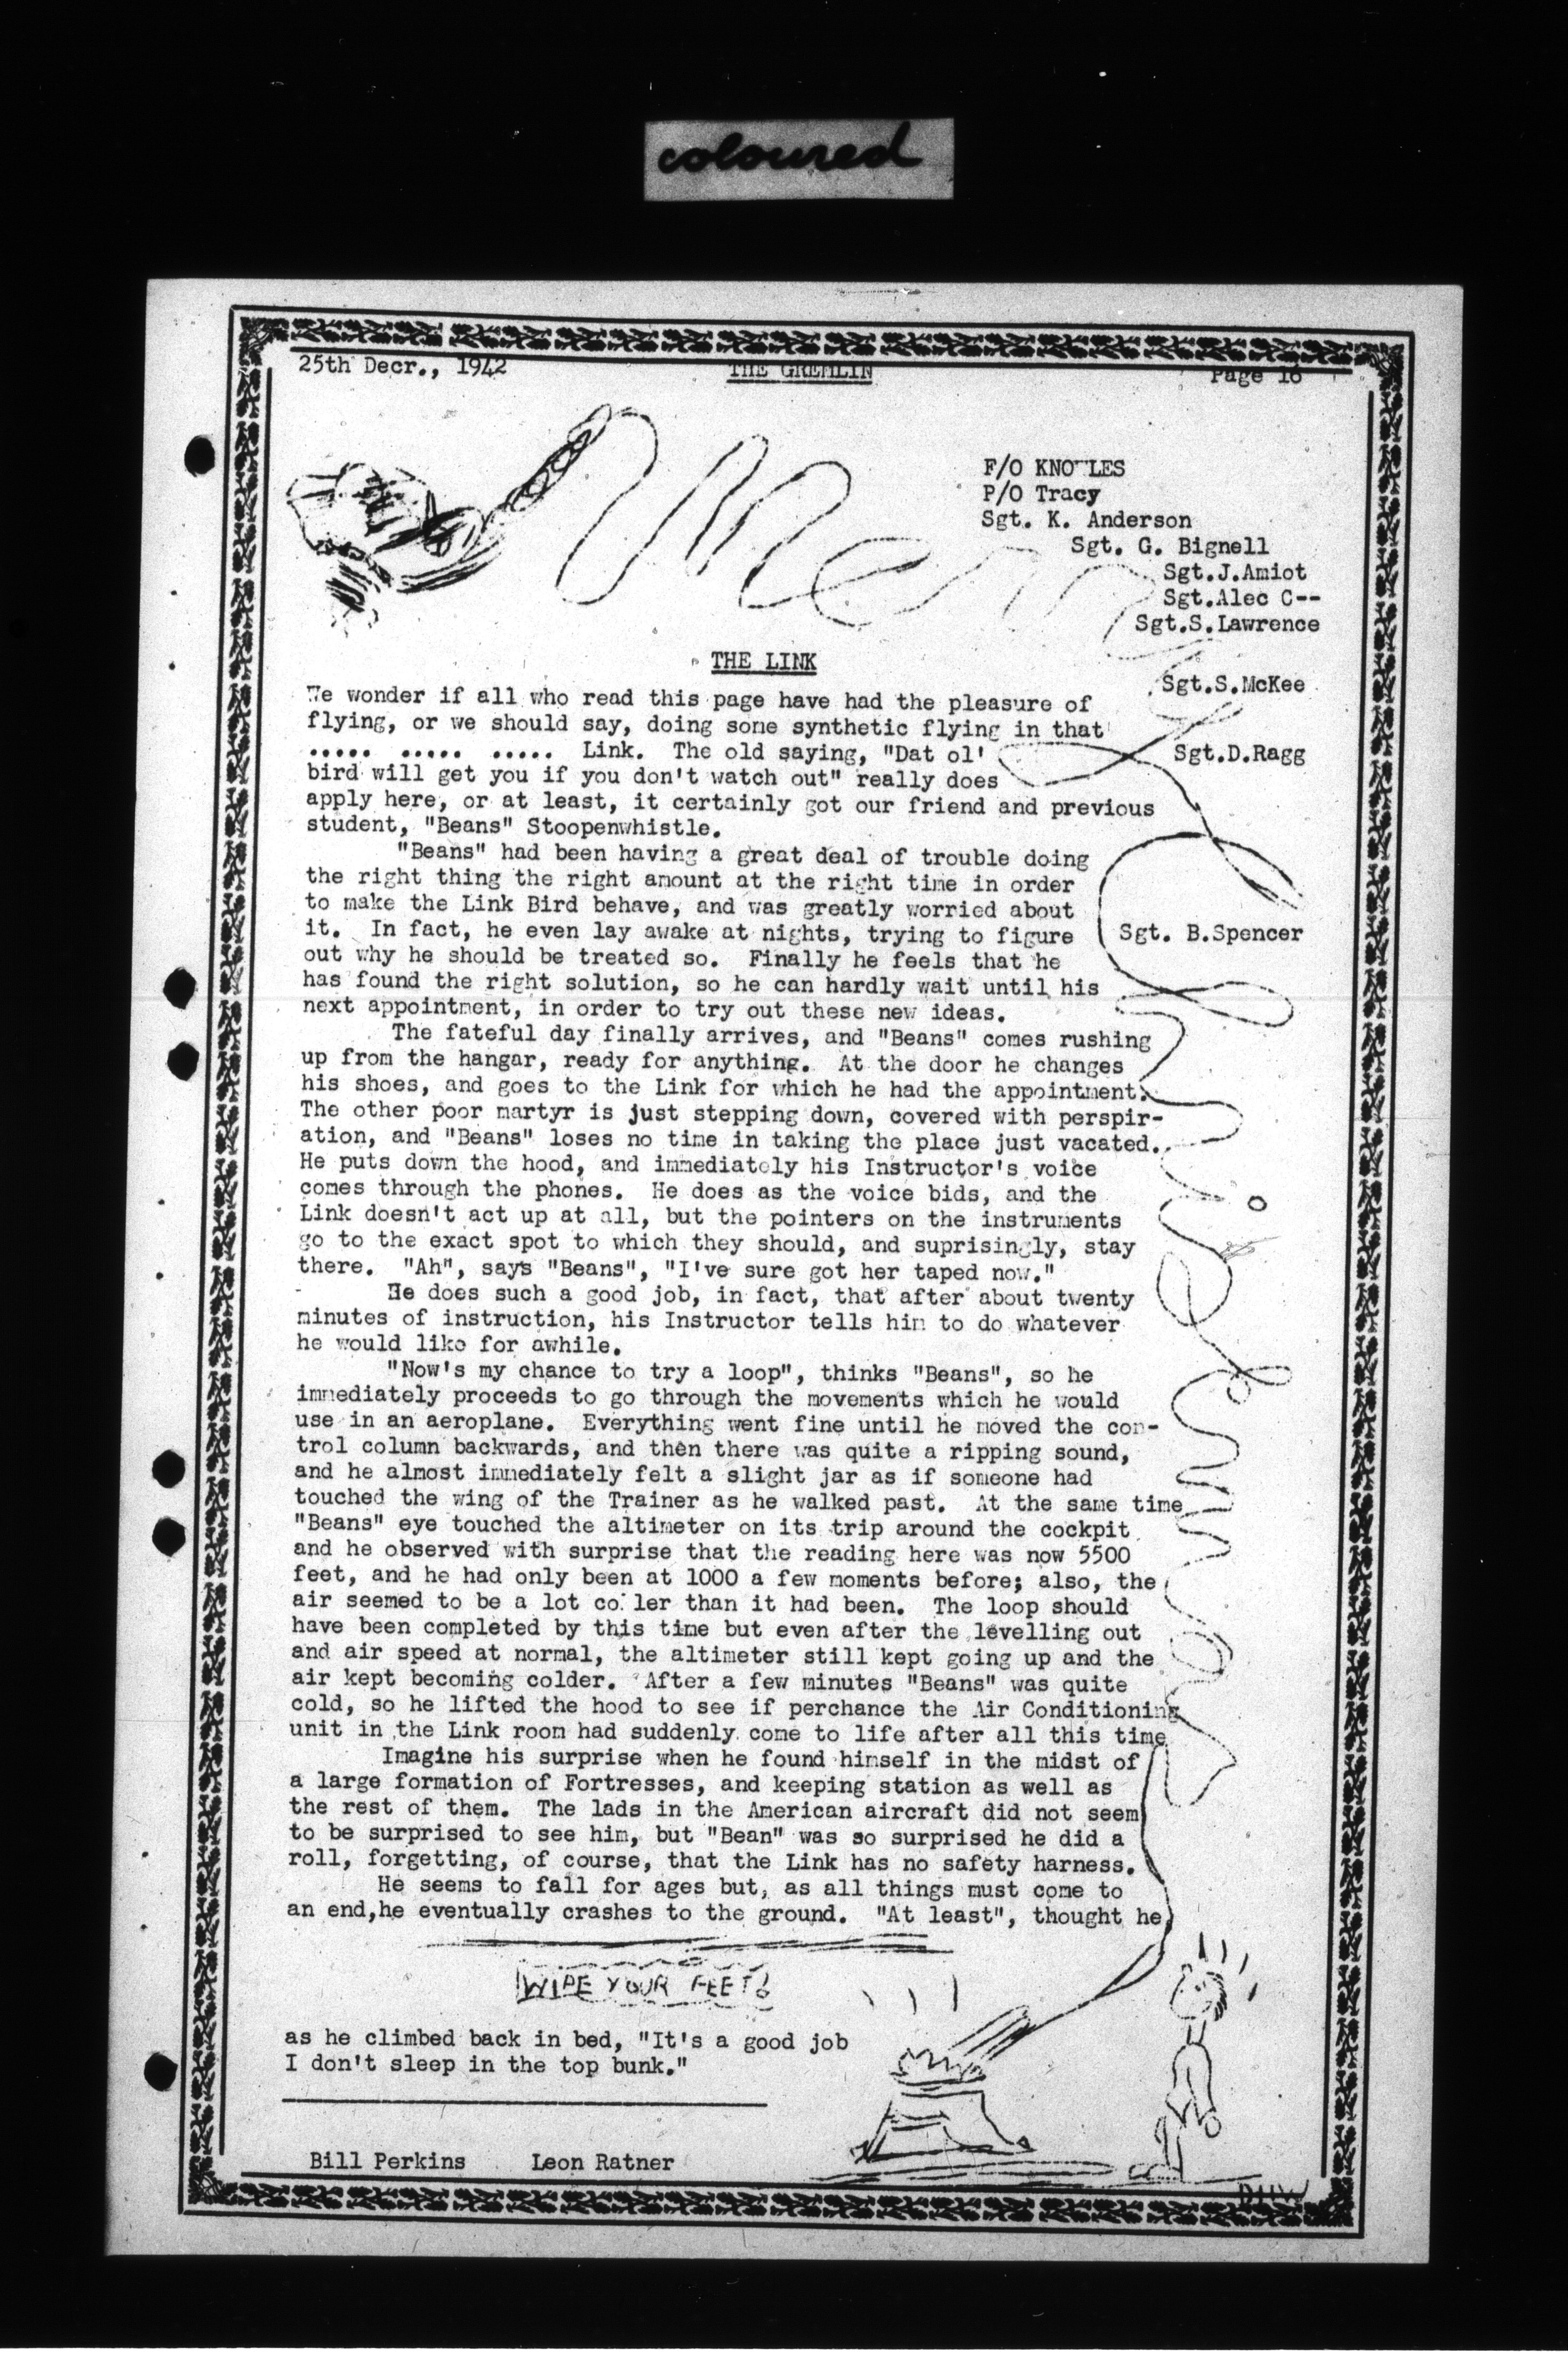 coloured
25th Decr., 1942 THE GREMLIN Page 16
Merry
F/O KNOWLES
P/O Tracy
Sgt. K. Anderson
Sgt. G. Bignell
Sgt.J.Amiot
Sgt.Alec C--
Sgt.S.Lawrence
Sgt.S.McKee
Sgt.D.Ragg
Sgt. B.Spencer
THE LINK
We wonder if all who read this page have had the pleasure of
flying, or we should say, doing some synthetic flying in that
..... ..... ..... Link. The old saying, "Dat ol'
bird will get you if you don't watch out" really does
apply here, or at least, it certainly got our friend and previous
student, "Beans" Stoopenwhistle.
"Beans" had been having a great deal of trouble doing
the right thing the right amount at the right time in order
to make the Link Bird behave, and was greatly worried about
it. In fact, he even lay awake at nights, trying to figure
out why he should be treated so. Finally he feels that he
has found the right solution, so he can hardly wait until his
next appointment, in order to try out these new ideas.
The fateful day finally arrives, and "Beans" comes rushing
up from the hangar, ready for anything. At the door he changes
his shoes, and goes to the Link for which he had the appointment.
The other poor martyr is just stepping down, covered with perspir-
ation, and "Beans" loses no time in taking the place just vacated.
He puts down the hood, and immediately his Instructor's voice
comes through the phones. He does as the voice bids, and the
Link doesn't act up at all, but the pointers on the instruments
go to the exact spot to which they should, and suprisingly, stay
there. "Ah", says "Beans", "I've sure got her taped now."
He does such a good job, in fact, that after about twenty
minutes of instruction, his Instructor tells him to do whatever
he would like for awhile.
"Now's my chance to try a loop", thinks "Beans", so he
immediately proceeds to go through the movements which he would
use in an aeroplane. Everything went fine until he moved the con-
trol column backwards, and then there was quite a ripping sound,
and he almost immediately felt a slight jar as if someone had
touched the wing of the Trainer as he walked past. At the same time
"Beans" eye touched the altimeter on its trip around the cockpit
and he observed with surprise that the reading here was now 5500
feet, and he had only been at 1000 a few moments before; also, the
air seemed to be a lot cooler than it had been. The loop should
have been completed by this time but even after the levelling out
and air speed at normal, the altimeter still kept going up and the
air kept becoming colder. After a few minutes "Beans" was quite
cold, so he lifted the hood to see if perchance the Air Conditioning
unit in the Link room had suddenly come to life after all this time
Imagine his surprise when he found himself in the midst of
a large formation of Fortresses, and keeping station as well as
the rest of them. The lads in the American aircraft did not seem
to be surprised to see him, but "Bean" was so surprised he did a
roll, forgetting, of course, that the Link has no safety harness.
He seems to fall for ages but, as all things must come to
an end,he eventually crashes to the ground. "At least", thought he,
WIPE YOUR FEET!
as he climbed back in bed, "It's a good job
I don't sleep in the top bunk."
Bill Perkins Leon Ratner